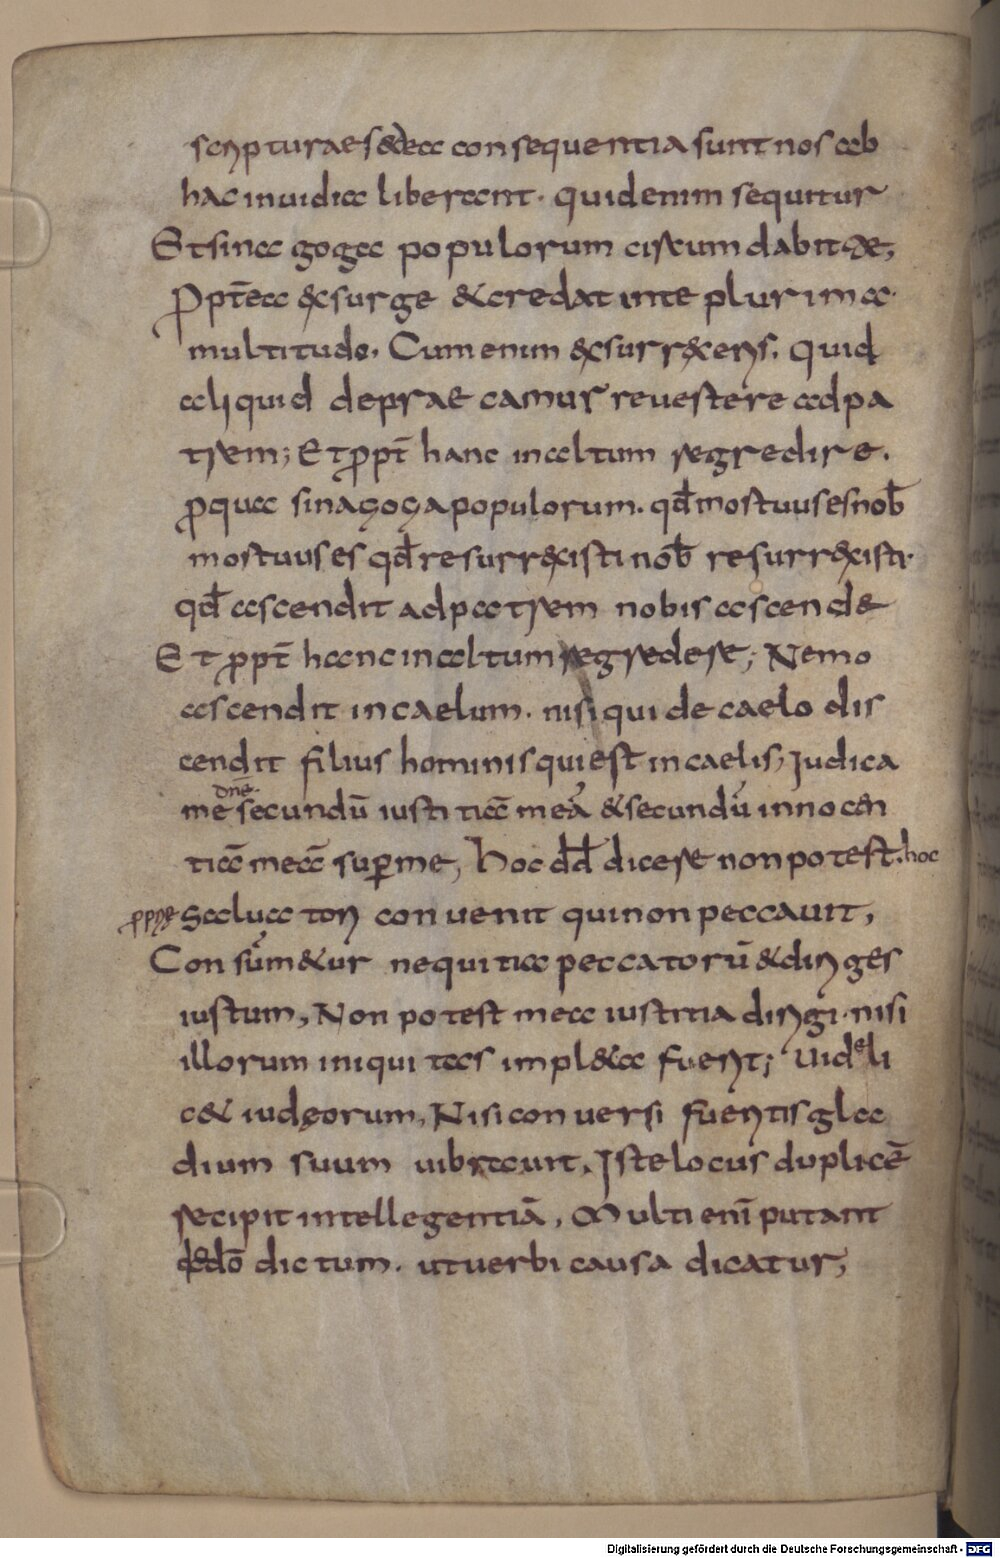 scripturae sedea consequentia sunt nos ab
hac inuidia liberant. quid enim sequitur
Et sinagoga populorum circumdabit te,
Ppt̄ea exsurge & credat in te plurima
multitudo. Cum enim exsurrexeris. quid
aliquid deprae camur reuestere ad pa
trem; Et ppt̄ hanc in altum regredire.
pqua sinagoga populorum. qd̄ mortuus es nob̄
mortuus es qd̄ resurrexisti nob̄ resurrexisti.
qd̄ ascendit ad patrem nobis ascende
Et ppt̄ hanc in altum regredere; Nemo
ascendit in caelum. nisi qui de caelo dis
cendit filius hominis qui est in caelis; Iudica
me dn̄e secundū iustitiā meā & secundū innocen
tiā meā super me; Hoc dd̄ dicere non potest. hoc
pprie saluatori conuenit qui non peccauit,
Consūmetur nequitia peccatorū & diriges
iustum, Non potest mea iustitia dirigi. nisi
illorum iniquitas impleta fuerit; Uideli
cet iudęorum, Nisi conuersi fueritis gla
dium suum uibrauit, Iste locus duplicē
recipit intellegentiā, Multi enī putant
de dō dictum. ut uerbi causa dicatur,
Digitalisierung gefördert durch die Deutsche Forschungsgemeinschaft - DFG